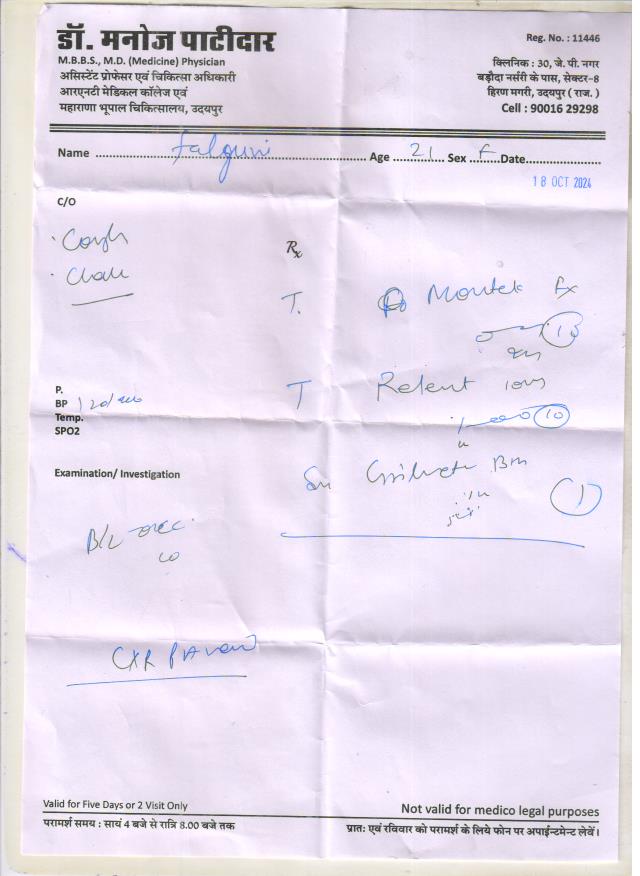 डॉ. मनोज पाटीदार
M.B.B.S., M.D. (Medicine) Physician
असिस्टेंट प्रोफेसर एवं चिकित्सा अधिकारी
आरएनटी मेडिकल कॉलेज एवं
महाराणा भूपाल चिकित्सालय, उदयपुर
Reg. No. : 11446
क्लिनिक : 30, जे. पी. नगर
बड़ौदा नर्सरी के पास, सेक्टर-8
हिरण मगरी, उदयपुर ( राज. )
Cell : 90016 29298
Name Falguni Age 21 Sex F Date
18 OCT 2024
C/O
Cough
Rx
T. Montek Fx
10
P.
BP
Temp.
SPO2
T Relent
10
Examination/ Investigation
1
B/L
CXR PA view
Valid for Five Days or 2 Visit Only
Not valid for medico legal purposes
परामर्श समय : सायं 4 बजे से रात्रि 8.00 बजे तक
प्रातः एवं रविवार को परामर्श के लिये फोन पर अपाईन्टमेन्ट लेवें।